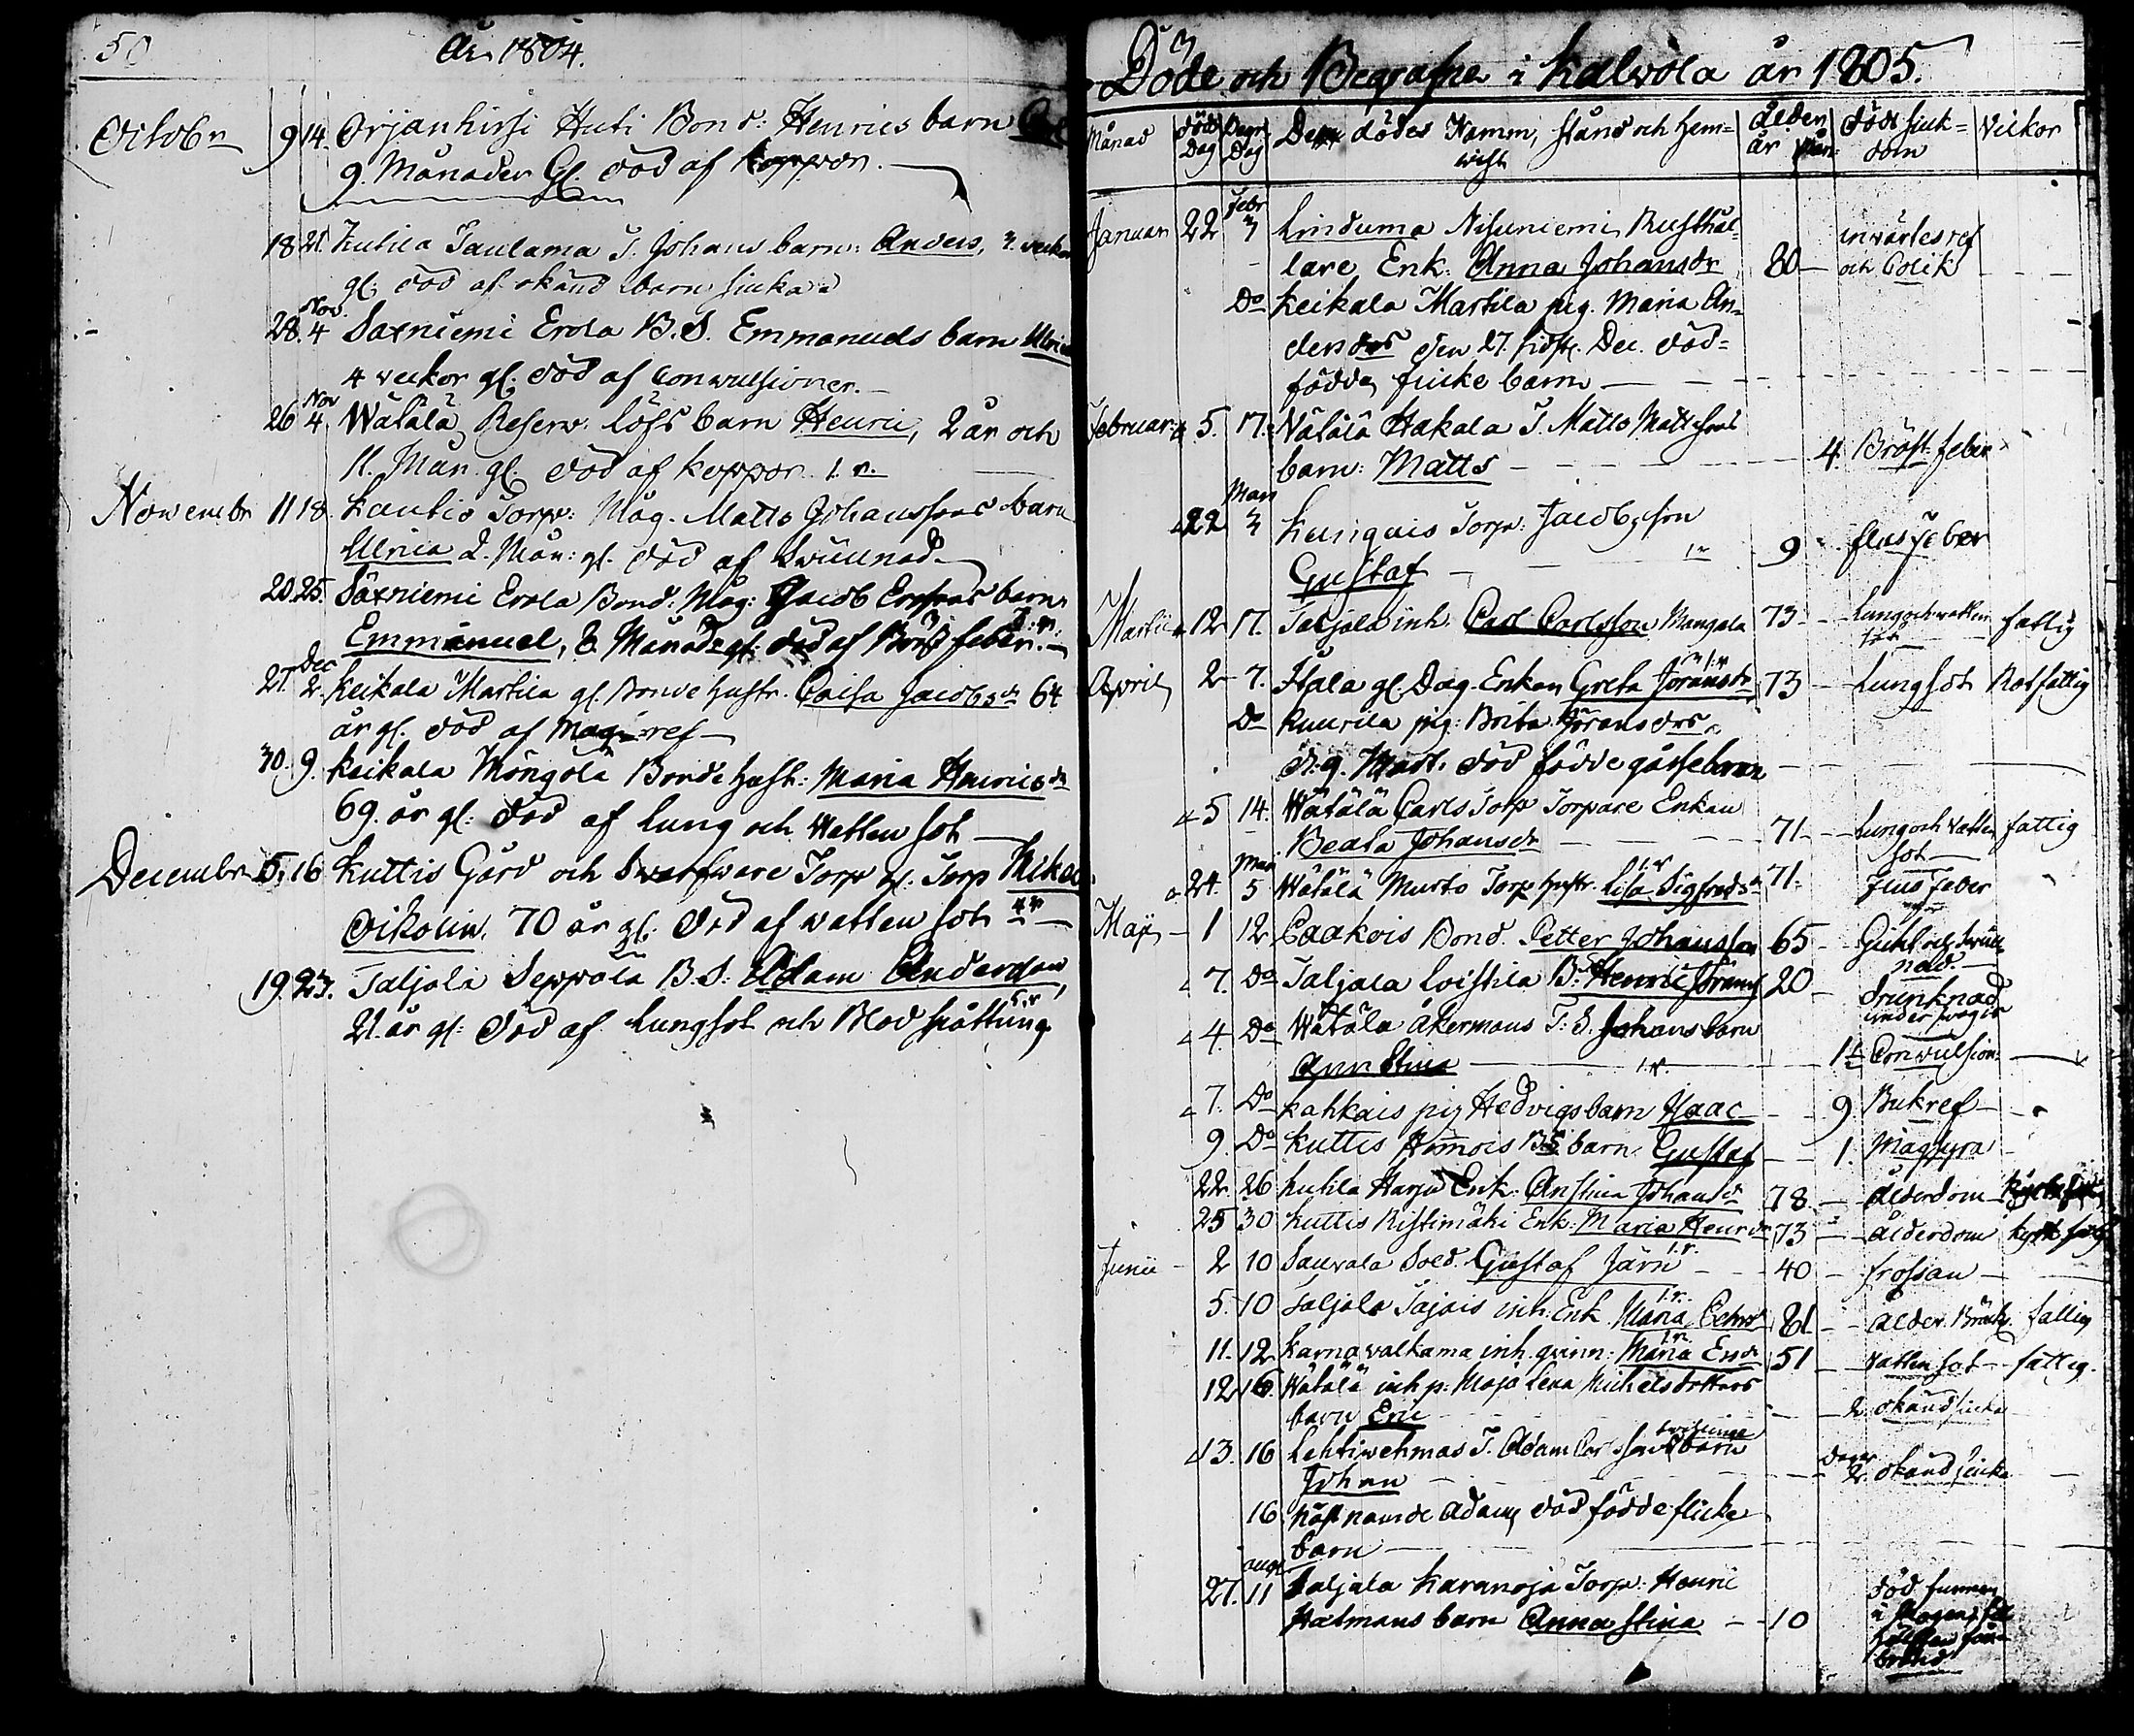 50
År 1804.
October 9 14. Orjanhirsi Huti Bond: Henrics barn
9. Månader Gl. död af koppor.
18 21. Kutila Taulama T. Johans barn: Anders, 3. veckor
gl. död af okänd barn siukdom
Nov.
28. 4 Saxniemi Erola B. S. Emmanuels barn Ulrica
4 veckor gl. död af Convulsioner.
Nov
26 4. Wätälä Reserv: Löfs barn Henric, 2 år och
11. Mån. gl. död af koppor. 1. r.
Novembr 11 18. Kautio Torp: Måg. Matts Johanssons barn
Ulrica 2. Mån: gl. död af Swullnad
20. 25. Säxniemi Erola Bond: Måg: Jacob Ersons barn
Emmanuel, 8. Månad gl. död af Bröst feber.
Dec
27. 2. Keikala Martila gl. Bonde hustr. Caisa Jacobsdr 64
år gl. död af Magref
30. 9. Keikala Möngölä Bonde hust: Maria Henricsdr
69. år gl: död af Lung och Watten sot
Decembr 5. 16 Kuttis Gård och Torp gl. Torp Mikael
Oikolin. 70 år gl. död af watten sot
19. 23. Taljala Seppälä B. S: Adam Anderson
21. år gl: död af Lungsot och Blod spåttung
Döde och Begrafne i Kalvola år 1805.
Månad död Dag Begr. Dag De dödes Namn, stånd och hem= ålder död siuk= Vilkor
wist år Mån: dom
Febr
Januari 22 3 Linduma Nisuniemi Rusthål= inwärtes ref
lare Enk: Anna Johansdr 80 och Colik
Do Keikala Martila pig. Maria An=
dersdrs den 27. sidstl. Dec. död=
födde flicke barn
Februari 5. 17. Wätälä Hakala T. Matts Mattssons
barn: Matts 4. Bröst feber
Mars
22 3 Kurquis Torp: Jacobs son
Gustaf 1 r 9 flusfeber
Martii 12 17. Taljala inh. Carl Carlsson Mangala 73 Lung och watten fattig
sot
April 2 7. Itala gl. Dag. Enkan Greta Jöransdr 73 Lungsot Rotfattig
Do Kuurila pig: Brita Jöransdrs
d: 9. Mart. död födde gossebarn
5 14. Wätälä Carls Torp Torpare Enkan
Beata Johansdr 71 Lung och Watten fattig
sot
Maj
24. 5 Wätälä Murto Torp hustr. Lisa Sigfredsdr 71. flus feber
Maji 1 12 Caakois Bond. Petter Johansson 65 Gicht och Swull
nad.
7. Do Taljala Loistila B: Henric Jörans 20 drunknad
4. Do Wätälä Åkermans T: S. Johans barn
Ann Stina 1. r. 1 Convulsion
7. Do Kahkais pig Hedvigs barn Isaac 9 Bukref
9. Do Kuttis Himois BS. barn Gustaf 1. Magsyra
22. 26 Kutila Harju Enk: Anstina Johansdr 78. Ålderdom
25 30 Kuttis Ristimäki Enk: Maria Henrdr 73 ålderdom
Junii 2 10 Sauvala Sold. Gustaf Järn 1. r. 40 frossan
5. 10 Taljala Tajais inh. Enk Maria 81 ålder. Bräckl. fattig
11. 12 Karnawalkama inh. qvinn: Maria Ersdr 51 Watten sot fattig.
12 16 Wätälä inh p: Maja Lena Michelsdotters
barn Eric 2. okänd siuka
13. 16 Lehtiwehmas T. Adam Carlssons barn Dagar
Johan 2. okänd siuka
16 näst namde Adams död födde flicke
barn
Aug
27. 11 Taljala Karanoja Torp: Henric död funnen
Halmans barn Anna Stina 10